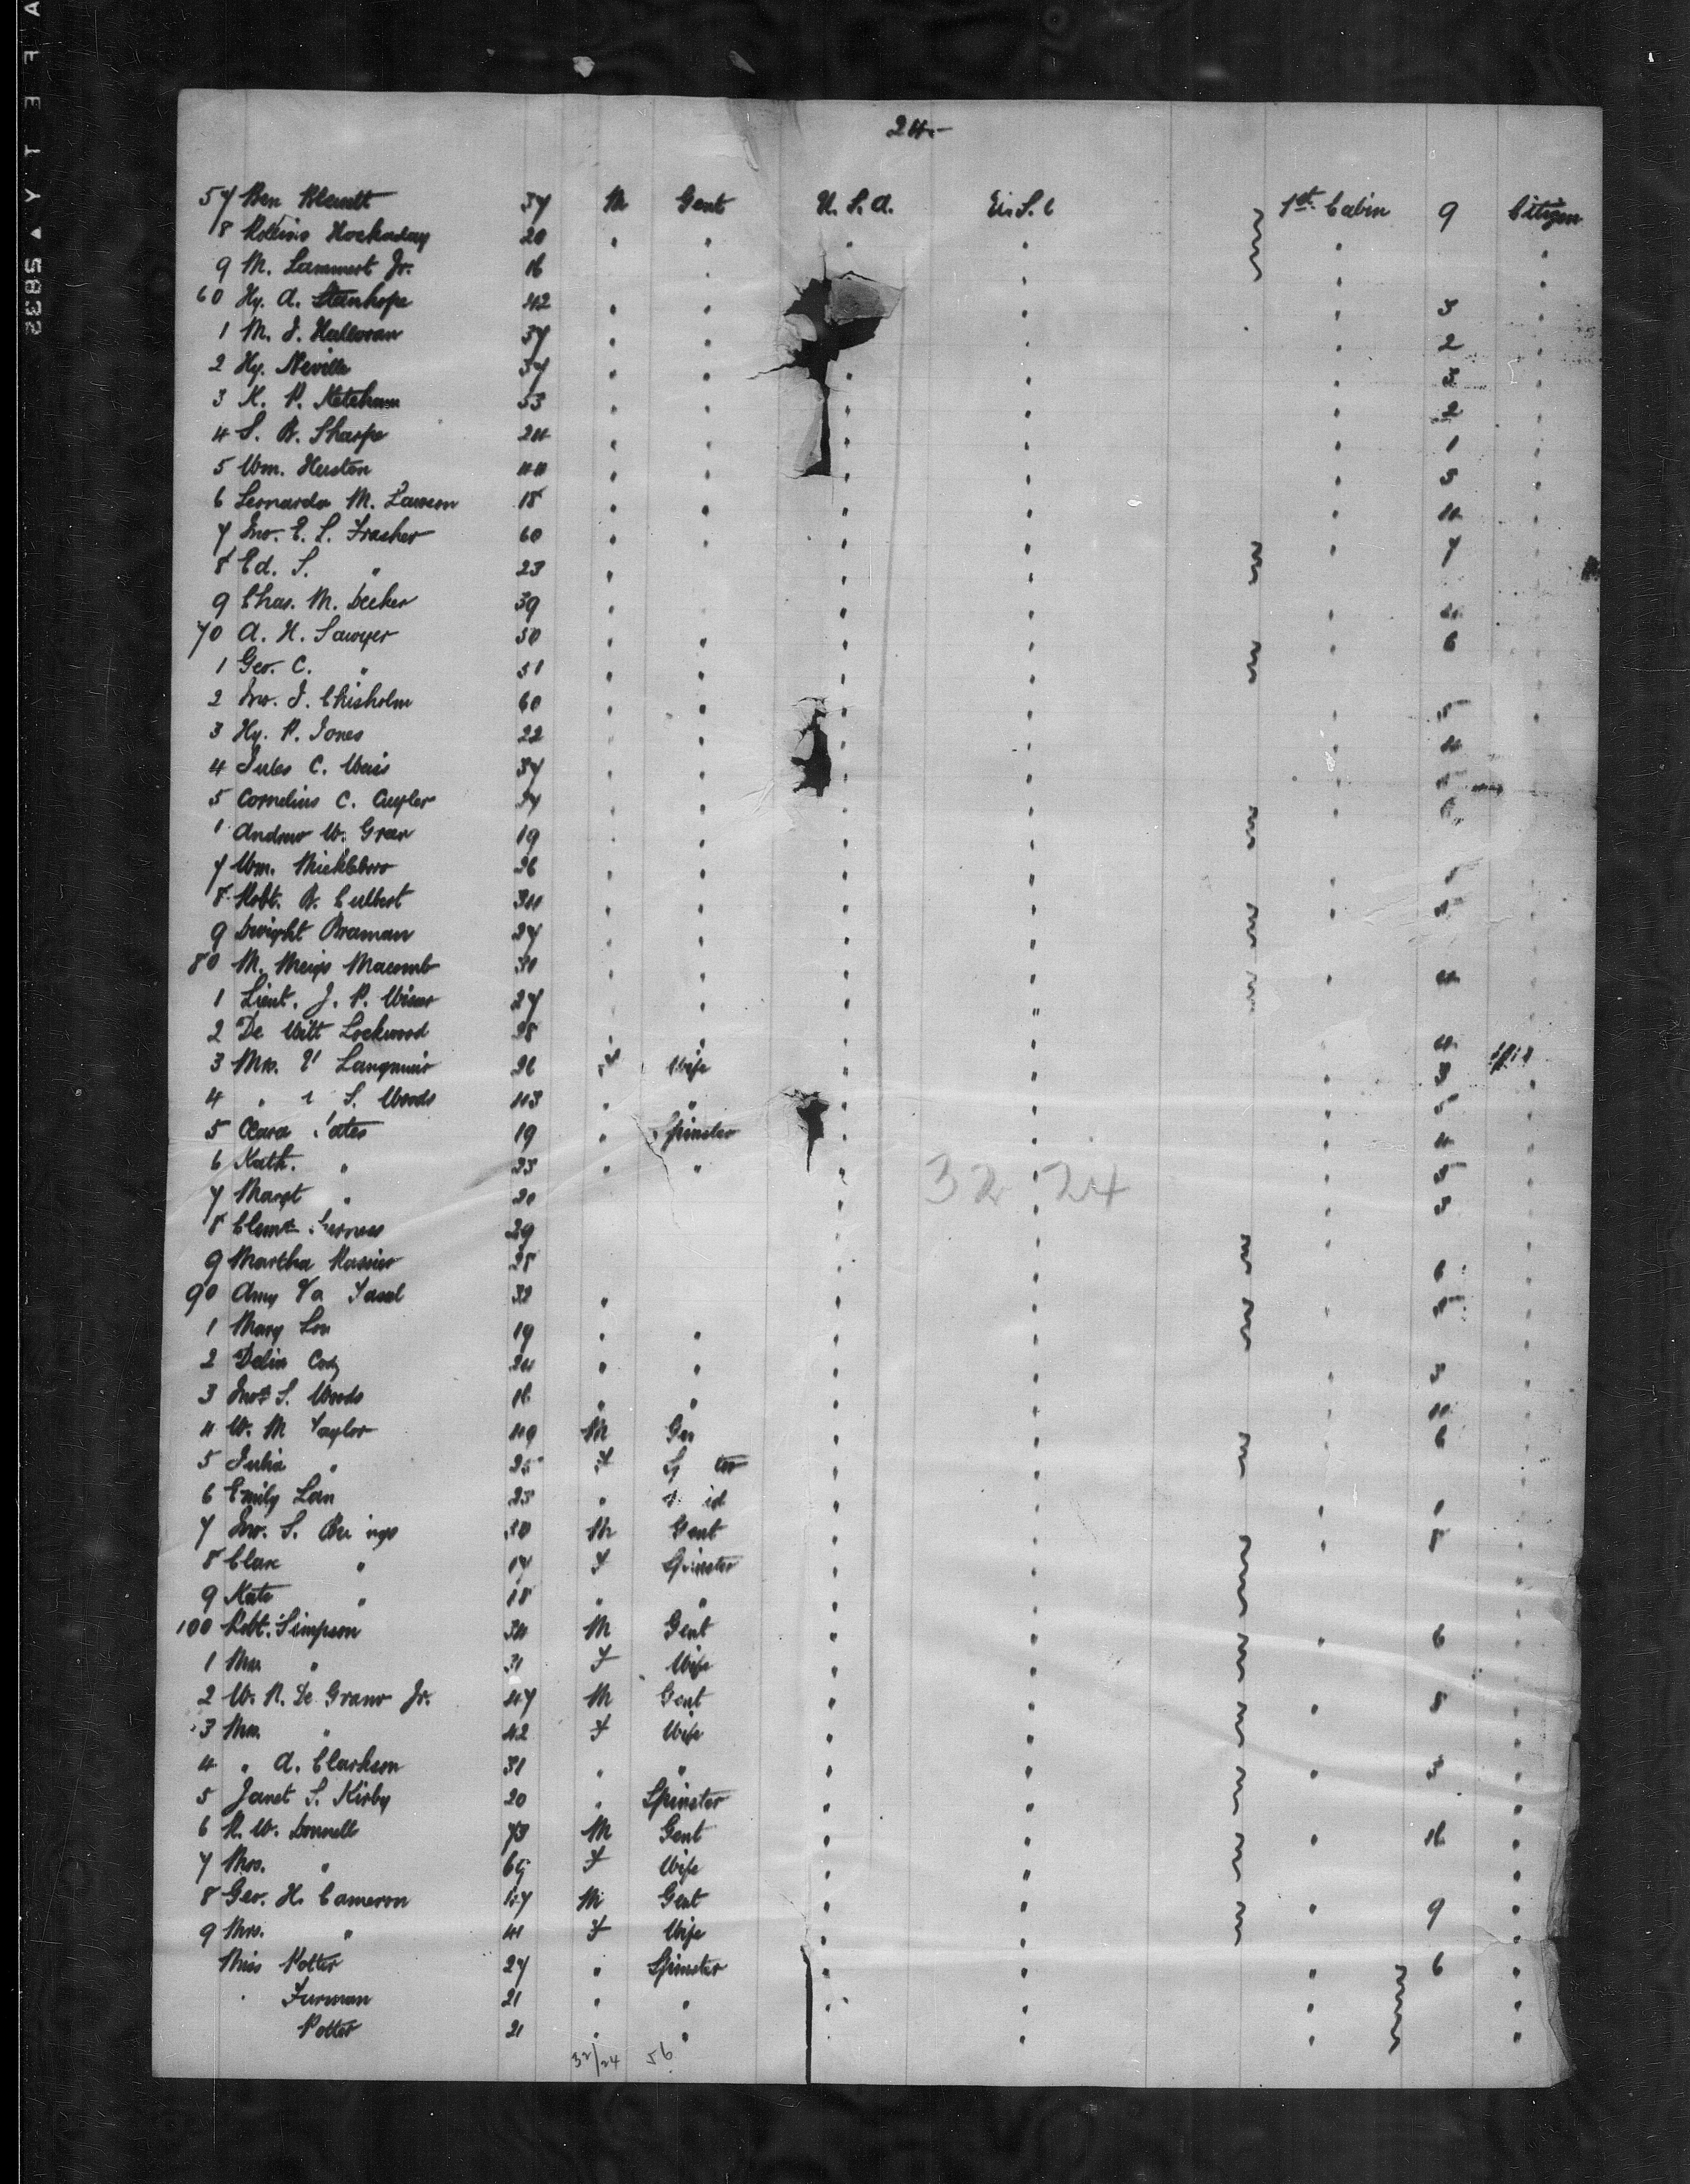 24.-
57 Ben Blewitt 37 M Gent U.S.A. U.S.C 1st Cabin 9 Citizen
8 Rollins Hockaday 20 " " " " " "
9 M. Lammert Jr. 16 " " " "
60 Hy. A. Stanhope 42 " " " " 3 "
1 M. J. Halloran 37 " " " " 2 "
2 Hy. Neville 37 " " " " " 3 "
3 K. P. Ketcham 53 " " " " " 2 "
4 S. B. Sharpe 24 " " " " " 1 "
5 Wm. Huston 44 " " " " " 5 "
6 Leonarda M. Lawson 18 " " " " " 4 "
7 Jno. E. S. Frasher 60 " " " " " 7 "
8 Ed. S. " 23 " " "
9 Chas. M. Decker 39 " " " "
70 A. H. Sawyer 50 " " " " " 6
1 Geo. C. " 51 " " " "
2 Jno. J. Chisholm 60 " " " " " "
3 Hy. P. Jones 22 " " " " "
4 Jules C. Weis 37 " " " " "
5 Cornelius C. Cuyler 34 " " " " "
Andrew W. Green 19 " " " "
7 Wm. 26 " " " " "
8 Robt. B. Culbert 34 " " " " "
9 Dwight Braman 27 " " " "
80 M. Meigs Macomb 30 " " " " " 4
1 Lieut. J. P. Wisser 27 " " " "
2 De Witt Lockwood 28 " " " " 4
3 Mrs. Langmuir 26 F Wife " " " 3 "
4 " S. Woods 43 " " " " " 5 "
5 Clara 19 " Spinster " " " 4 "
6 Kath. " 23 " " " " " 5 "
7 Margt " 20 " " " 3 "
8 29 " " "
9 Martha 28 " " 6 "
90 Amy 32 " " " " "
1 Mary 19 " " " " "
2 Delia Cody 24 " " " " " 3 "
3 S. Woods 16 " " " " " 4 "
4 W. M Taylor 49 M " " " 6 "
5 Julia " 25 F " " "
6 Emily 23 " " " " 1 "
7 Jno. S. 30 M Gent " " " 8 "
8 " 17 F Spinster " " "
9 Kate " 18 " " " " "
100 Robt. Simpson 34 M Gent " " " 6 "
1 Mrs. " 31 F Wife " " "
2 W. R. De Grauw Jr. 47 M Gent " " " 8 "
3 Mrs. " 42 F Wife " " "
4 " A. Clarkson 31 " " " " " 3 "
5 Janet S. Kirby 20 " Spinster " " "
6 R. W. Donnell 73 M Gent " " " 16 "
7 Mrs. " 65 F Wife " " "
8 Geo. H. Cameron 47 M Gent " " " 9 "
9 Mrs. " 41 F Wife " " "
Miss Potter 27 " Spinster " " " 6 "
" Furman 21 " " " " " "
Potter 21 " " " " "
32 24
32/24 56